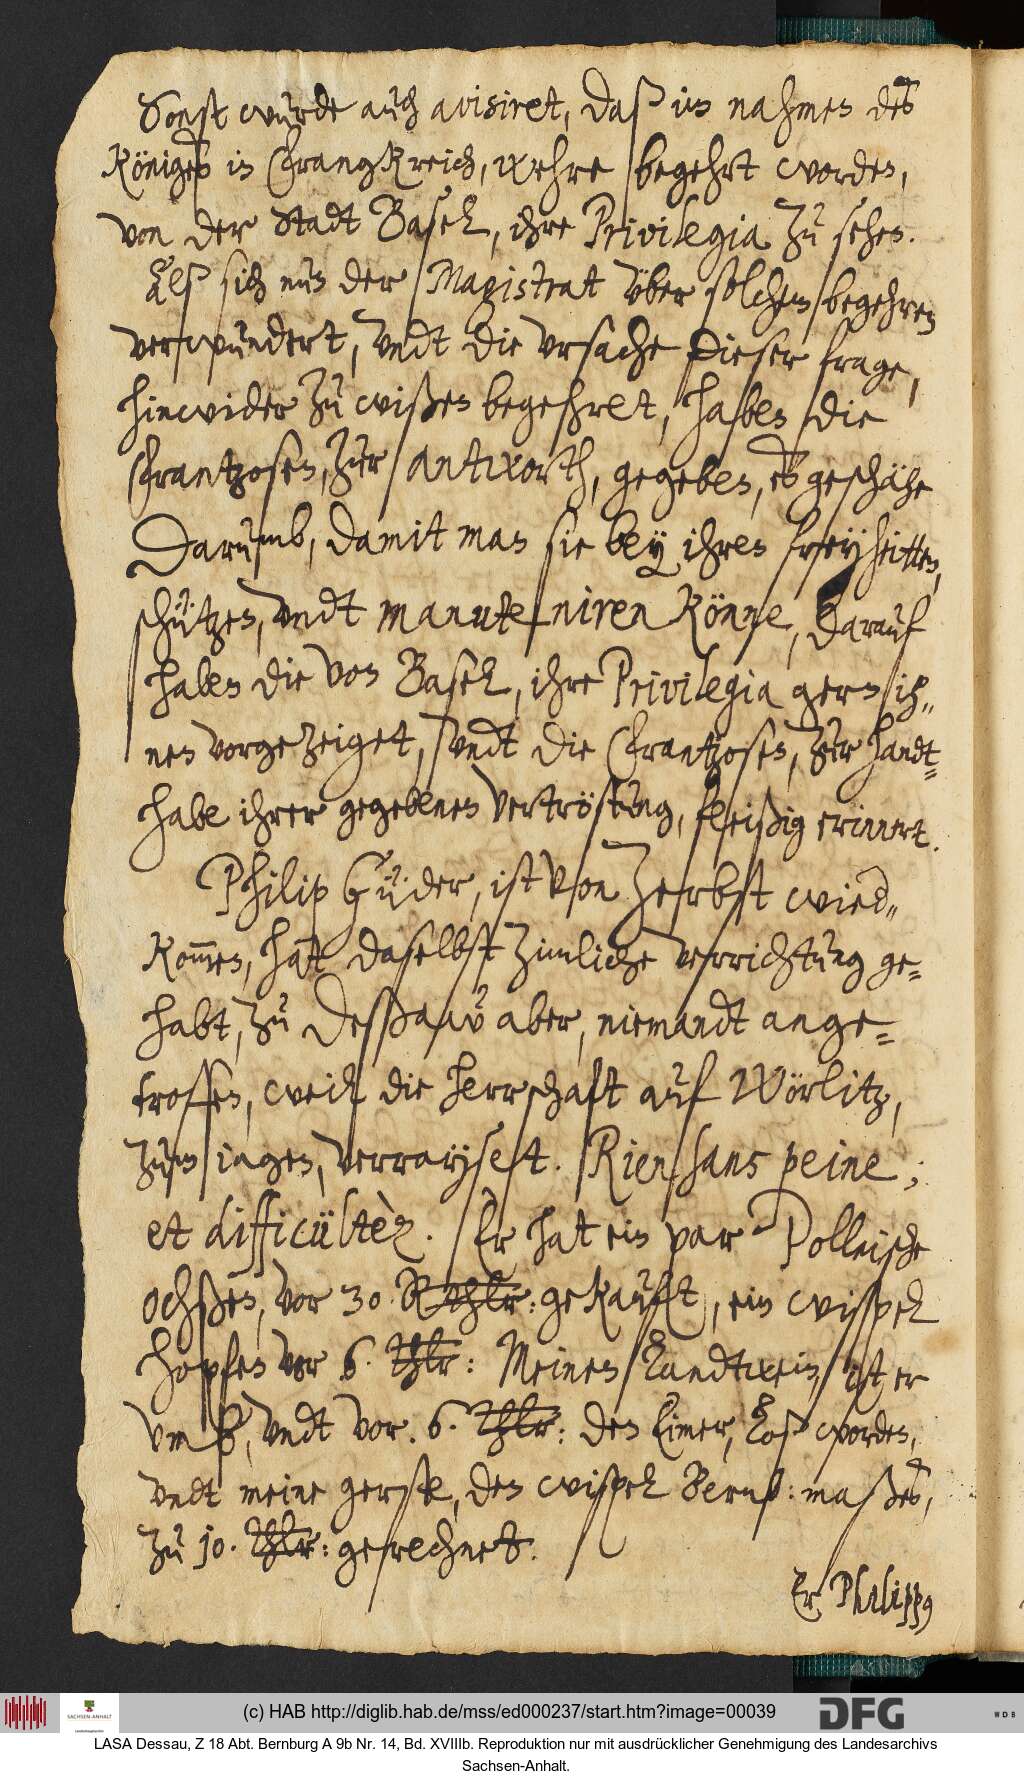 Sonst wurde auch avisiret, daß im nahmen des
Königs in Franckreich, wehre begehrt worden,
von der Stadt Basel, ihre Privilegia zu sehen.
Alß sich nun der Magistrat über solchem begehren
verwundert, undt die ursache dieser frage,
hinwider zu wißen begehret, haben die
Frantzosen, zur antworth, gegeben, es geschähe
Darumb, damit man sie bey ihren freyheitten,
schützen, undt manuteniren könne, darauf
haben die von Basel, ihre Privilegia gern ih„
nen vorgezeiget, undt die Frantzosen, zur handt=
habe ihrer gegebenen vertröstung, fleißig erinnert.
Philip Güder, ist von Zerbst wied„
kom̅en, hat daselbst zimliche verrichtung ge=
habt, zu Deßaw aber, niemandt ange=
troffen, weil die herrschaft auf Wörlitz,
zum iagen, verrayset. Rien sans peine;
et difficültèz. Er hat ein par Polleische
ochßen, vor 30 Rthlr: gekaufft, ein wispel
hopfen vor 6. thlr: Meinen Landtwein, ist er
umb, undt vor. 6. thlr: den Eimer, loß worden,
undt meine gerste, den wispel Bernb: maßes,
zu 10. thlr: gerechnet.
Er Philippus
(c) HAB http://diglib.hab.de/mss/ed000237/start.htm?image=00039
SACHSEN-ANHALT
DFG
WDB
LASA Dessau, Z 18 Abt. Bernburg A 9b Nr. 14, Bd. XVIIIb. Reproduktion nur mit ausdrücklicher Genehmigung des Landesarchivs
Sachsen-Anhalt.